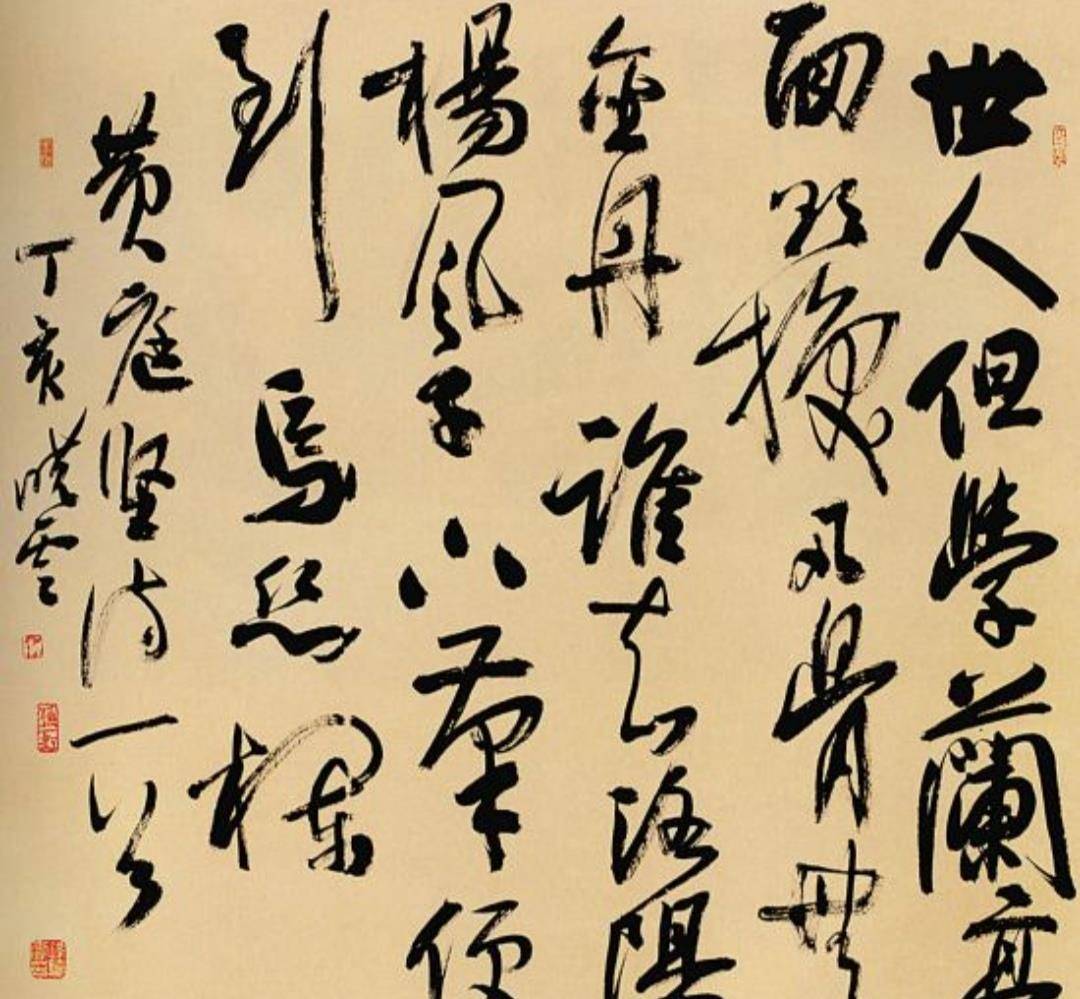 世人但學蘭亭
面欲換凡骨無
金丹誰知洛陽
楊風子下筆便
到烏絲欄
黄庭坚诗一首
丁亥晓雲